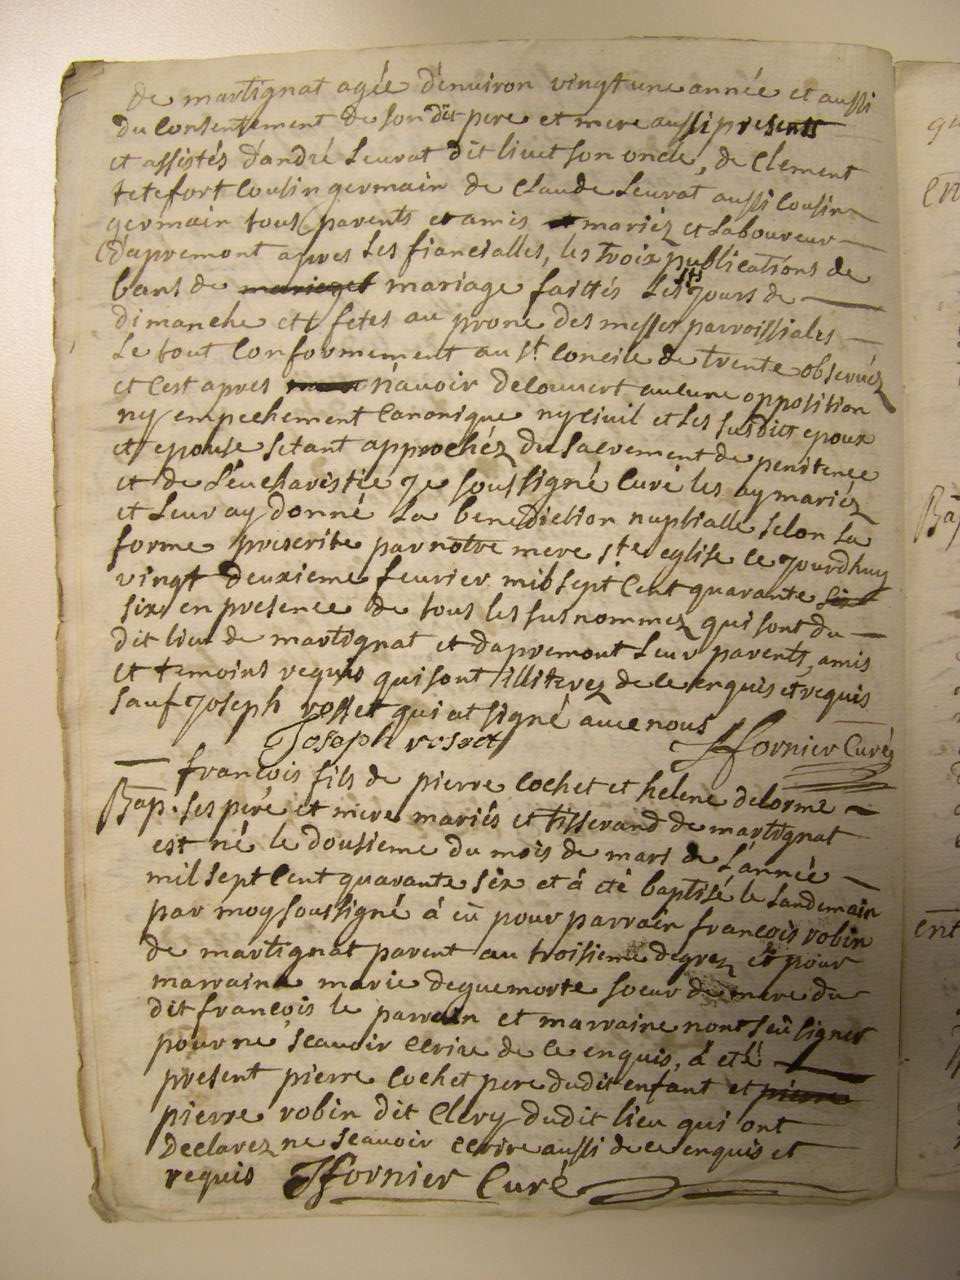 de martignat agée d'environ vingt une année et aussi
du Consentement de son dit pere et mere aussi presents
et assistés d'andré Leuvrat dit livet son oncle, de Clement
tetefort Cousin germain de Claude Leuvrat aussi Cousin
germain tous parents et amis mariéz et Laboureur
d'apremont apres Les fiancialles, les trois publications de
bans de mariage faittés Les jours de
dimanche et fetes au prone des messes parroissiales
Le tout Conformement au st Concile de trente observéz
et C'est apres n'avoir decouvert aucune opposition
ny empechement Canonique ny Civil et Les susdits epoux
et epouse s'etant approchéz du sacrement de penitence
et de L'eucharistie je soussigné Curé les ay mariéz
et Leur ay donné La benediction nuptialle selon La
forme prescrite par notre mere ste eglise ce jourdhuy
vingt deuxieme fevrier mil sept Cent quarante
six en presence de tous les susnommez qui sont du
dit lieu de martignat et d'apremont Leur parents, amis
et temoins requis qui sont illiterez de ce enquis et requis
sauf joseph rosset qui at signé avec nous
Joseph rosset Jfornier Curé
françois fils de pierre Cochet et helene delorme
Bap. ses peré et mere mariés et tisserand de martignat
est né le dousieme du mois de mars de L'année
mil sept Cent quarante six et á eté baptisé le Landemain
par moy soussigné á eü pour parrain francois robin
de martignat parent au troisieme degrez et pour
marraine marie deguemorte soeur de mere du
dit françois le parrain et marraine n'ont sçeü signer
pour ne sçeavoir ecrire de ce enquis, á eté
present pierre Cochet pere dudit enfant et
pierre robin dit Clery dudit lieu qui ont
declarez ne sçeavoir ecrire aussi de ce enquis et
requis Jfornier Curé